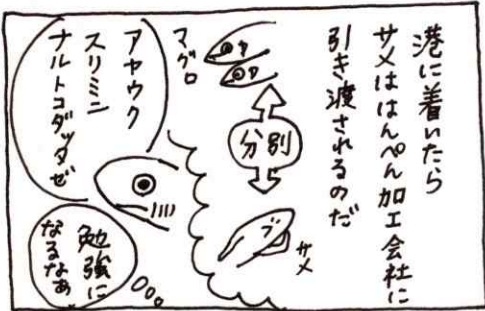 港に着いたら
サメははんぺん加工会社に
引き渡されるのだ
マグロ
分別
サメ
アヤウク
スリミニ
ナルトコダッタゼ
勉強に
なるなぁ